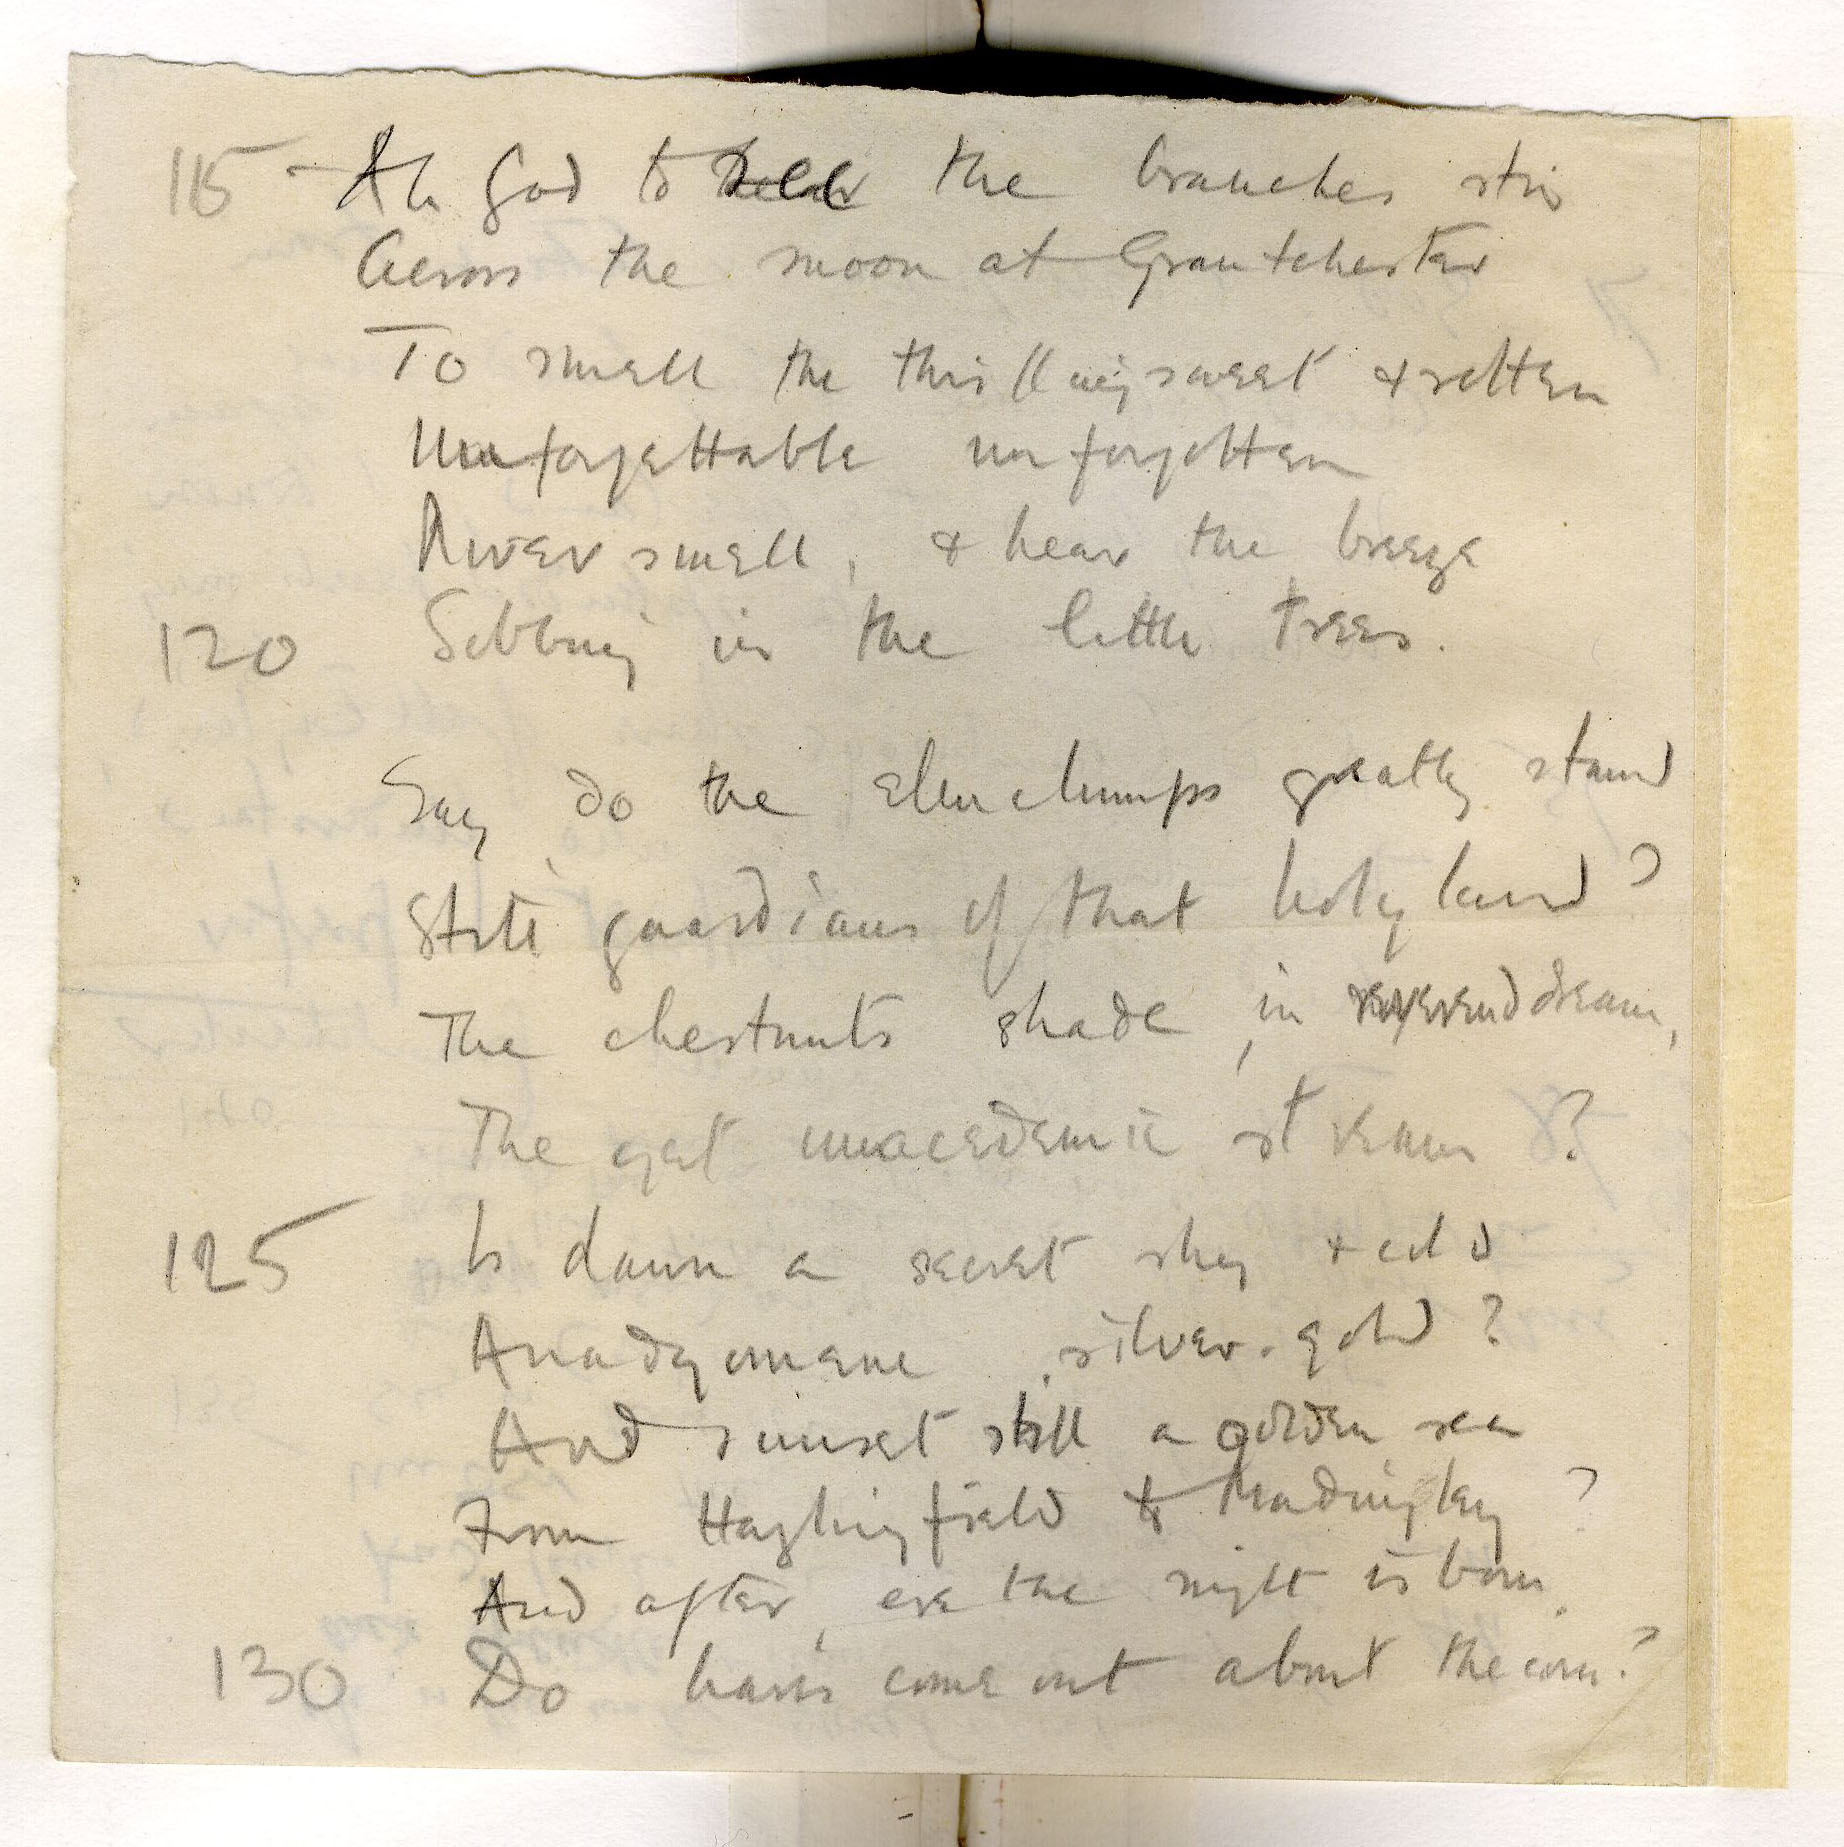 115 - Ah God to see the branches stir
Across the moon at Grantchester
To smell the thrilling sweet & rotten
Unforgettable unforgotten
River smell, & hear the breeze
120 Sobbing in the little trees.
Say, do the elm clumps greatly stand
Still guardians of that holy land?
The chestnuts shade, in reverend dream,
The yet unacademic stream?
125 Is dawn a secret shy & cold
Anadyomene, silver-gold?
And sunset still a golden sea
From Haslingfield to Madingley?
And after, ere the night is born,
130 Do hares come out about the corn?